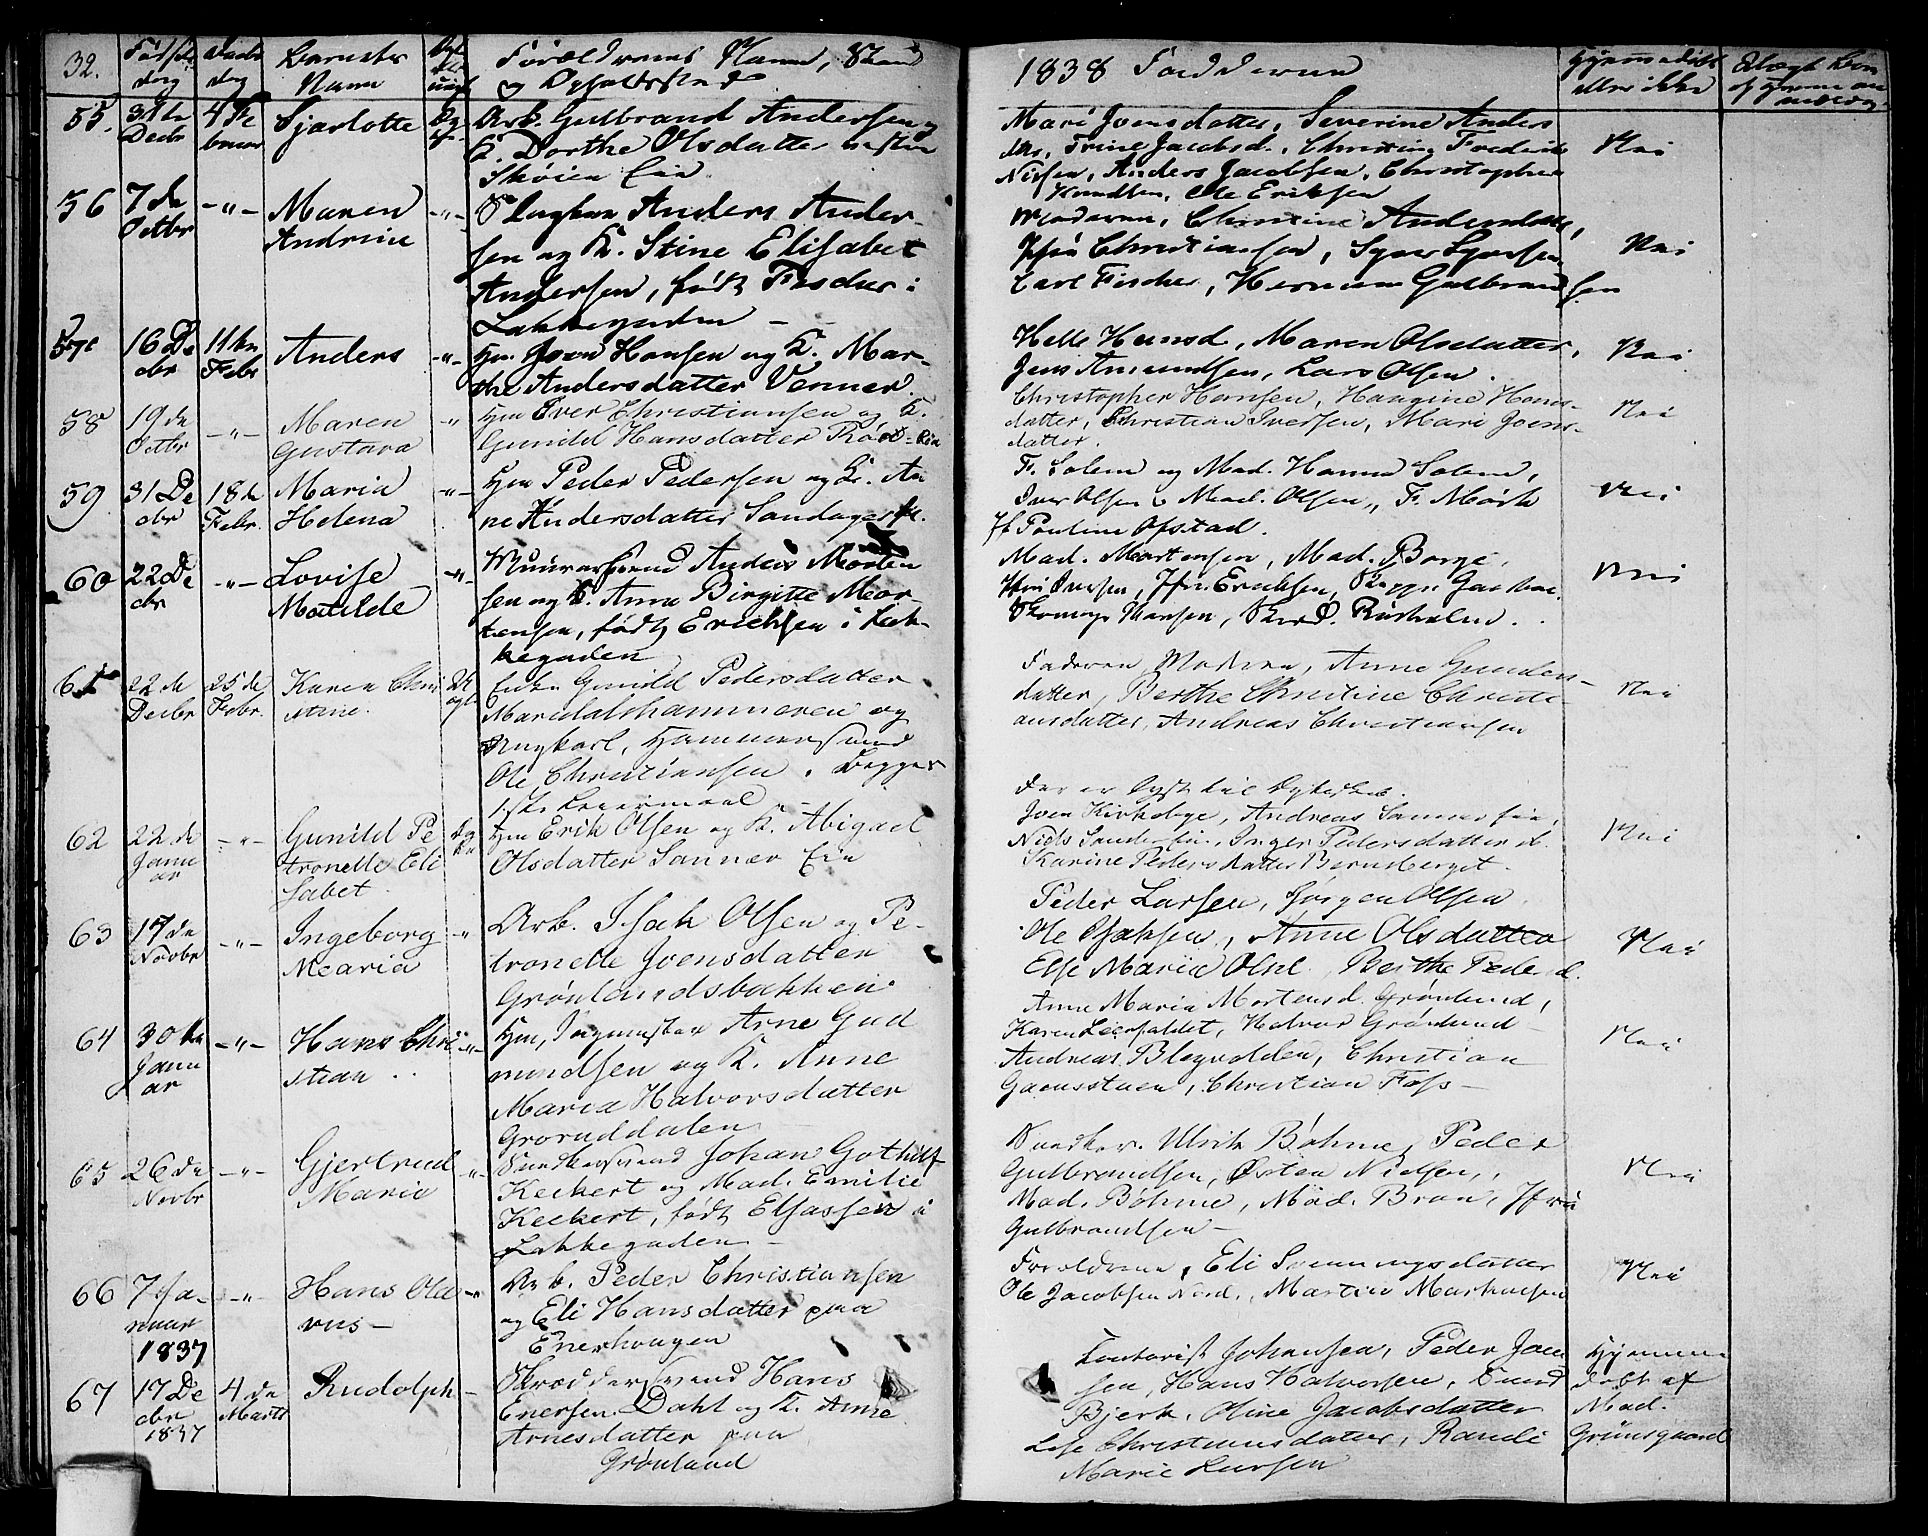 32. Fødsels dag Daabs dag Barnets Navn Forældrenes Navn, Stand og Opholdssted
1838 Faddere Hjemmedøbt eller ikke
55. 31te Decbr 4 Fe bruar Sjarlotte Arb. Gulbrand Andersen og
K. Dorthe Olsdatter
Skøien Eie
Mari Joensdatter, Severine Anders
dtr, Trine Jacobsd., Christian Frederik
Nilsen, Anders Jacobsen, Christopher
Knudsen, Ole Eriksen
Nei
56 7de Octbr -"- Maren Andrine -"- Anders Ander-
sen og K. Stine Elisabet
Andersen, født Fischer i
Lakkegaden -
Moderen, Christine Andersdatter,
Jfr Christiansen, Syver Syversen
Carl Fischer, Herman Gulbrandsen
Nei
57 16 De cbr 11te Febr Anders -"- Hm. Joen Hansen og K. Mar-
the Andersdatter Venner.
Helle Hansd, Maren Olsdatter,
Jens Amundsen, Lars Olsen.
Nei
58 19de Octbr -"- Maren Gustava " Hm Iver Christiansen og K.
Gunild Hansdatter
Christopher Hansen, Hangine Hans-
datter, Christian Iversen, Mari Joens-
datter.
Nei
59 31 De cbr 18de Febr. Maria Helena -"- Hm Peder Pedersen og K. An
ne Andersdatter
F. Solem og Mad. Hanna Solem,
Iver Olsen & Mad. Olsen, F. Mørk
Jf Pauline Ofstad.
Nei
60 22 De cbr -"- Lovise Matilde -"- Muursvend Anders Morten
sen og K. Anne Birgitte Mor-
tensen, født Ericksen i Lak-
kegaden
Mad. Mortensen, Mad. Borge,
Jfr. Ericksen,
Thomas Hansen,
Nei
61 22de Decbr 25de Febr. Karen Chri stine. Enke Gunild Pedersdatter
Maridalshammeren og
Ungkarl, Hammersmed
Ole Christiansen. Begges
1ste Leiermaal
Faderen, Moderen, Anne Gunders-
datter, Berthe Christine Christi-
ansdatter, Andreas Christiansen
Nei
Der er lyst til Ægteskab.
62 22de Janu ar -"- Gunild Pe tronelle Eli sabet Hm Erik Olsen og K. Abigael
Olsdatter Sanner Eie
Joen Kirkeløge, Andreas Sannereie,
Niels Sandereie, Inger Pedersdatter ib.
Karine Pedersdatter Bernsberget.
Nei
63 17de Novbr -"- Ingeborg Maria " Arb. Isak Olsen og Pe-
tronelle Joensdatter
Grønlandsbakken
Peder Larsen, Jørgen Olsen
Ole Isaksen, Anne Olsdatter
Else Maria Olsd., Berthe Pedersd.
Anne Maria Mortensd. Grønland,
Nei
64 30te Janu ar -"- Hans Chri stian -"- Hm, Arne Gud
mundsen og K. Anne
Maria Halvorsdatter
Groruddalen
Halvor Grønlund
Andreas Christian
Christian Foss -
Nei
65 26de Novbr -"- Gjertrud Maria -"- Johan Gothilf
Keckert og Mad. Emilie
Keckert, født Elsassen i
Lakkegaden -
Ulrik Bøhme, Peder
Gulbrandsen, Østen Nielsen,
Mad. Bøhme, Mad. Brun, Jfru
Gulbrandsen -
Nei
66 7 Ja- nuar 1837 -"- Hans Ola vus - -"- Arb. Peder Christiansen
og Eli Hansdatter paa
Enerhougen
Forældrene, Eli Svenningsdatter
Ole Jacobsen Martin Markusen
Nei
67 17 De cbr 1837 4de Marts Rudolph - Skrædersvend Hans
Enersen Dahl og K. Anne
Arnesdatter paa
Grønland
Contorist Johansen, Peder Jan
sen, Hans Halvorsen,
Bjerk, Oline Jacobsdatter
Lise Christiansdatter, Randi
Marie Larsen
Hjemme
døbt af
Mad.
Grünsgaard